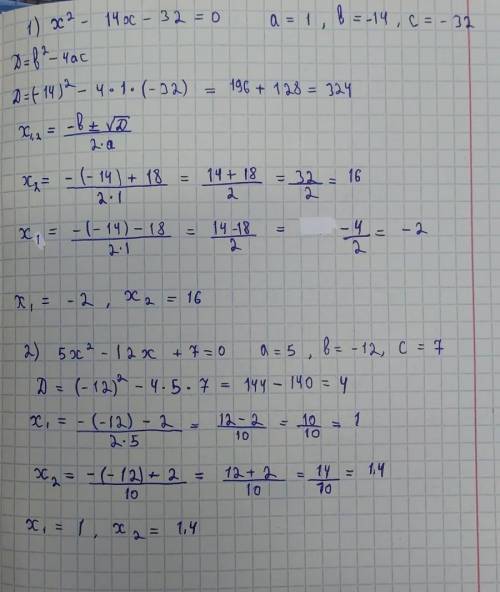 1) x² - 14x - 32 = 0 a = 1, в = -14, c = - 32
D = в² - 4ac
D = (-14)² - 4 · 1 · (-32) = 196 + 128 = 324
x₁,₂ = (-в ± √D) / (2·a)
x₂ = (-(-14) + 18) / (2·1) = (14 + 18) / 2 = 32/2 = 16
x₁ = (-(-14) - 18) / (2·1) = (14 - 18) / 2 = -4/2 = -2
x₁ = -2, x₂ = 16
2) 5x² - 12x + 7 = 0 a = 5, в = -12, c = 7
D = (-12)² - 4 · 5 · 7 = 144 - 140 = 4
x₁ = (-(-12) - 2) / (2·5) = (12 - 2) / 10 = 10/10 = 1
x₂ = (-(-12) + 2) / 10 = (12 + 2) / 10 = 14/10 = 1,4
x₁ = 1, x₂ = 1,4